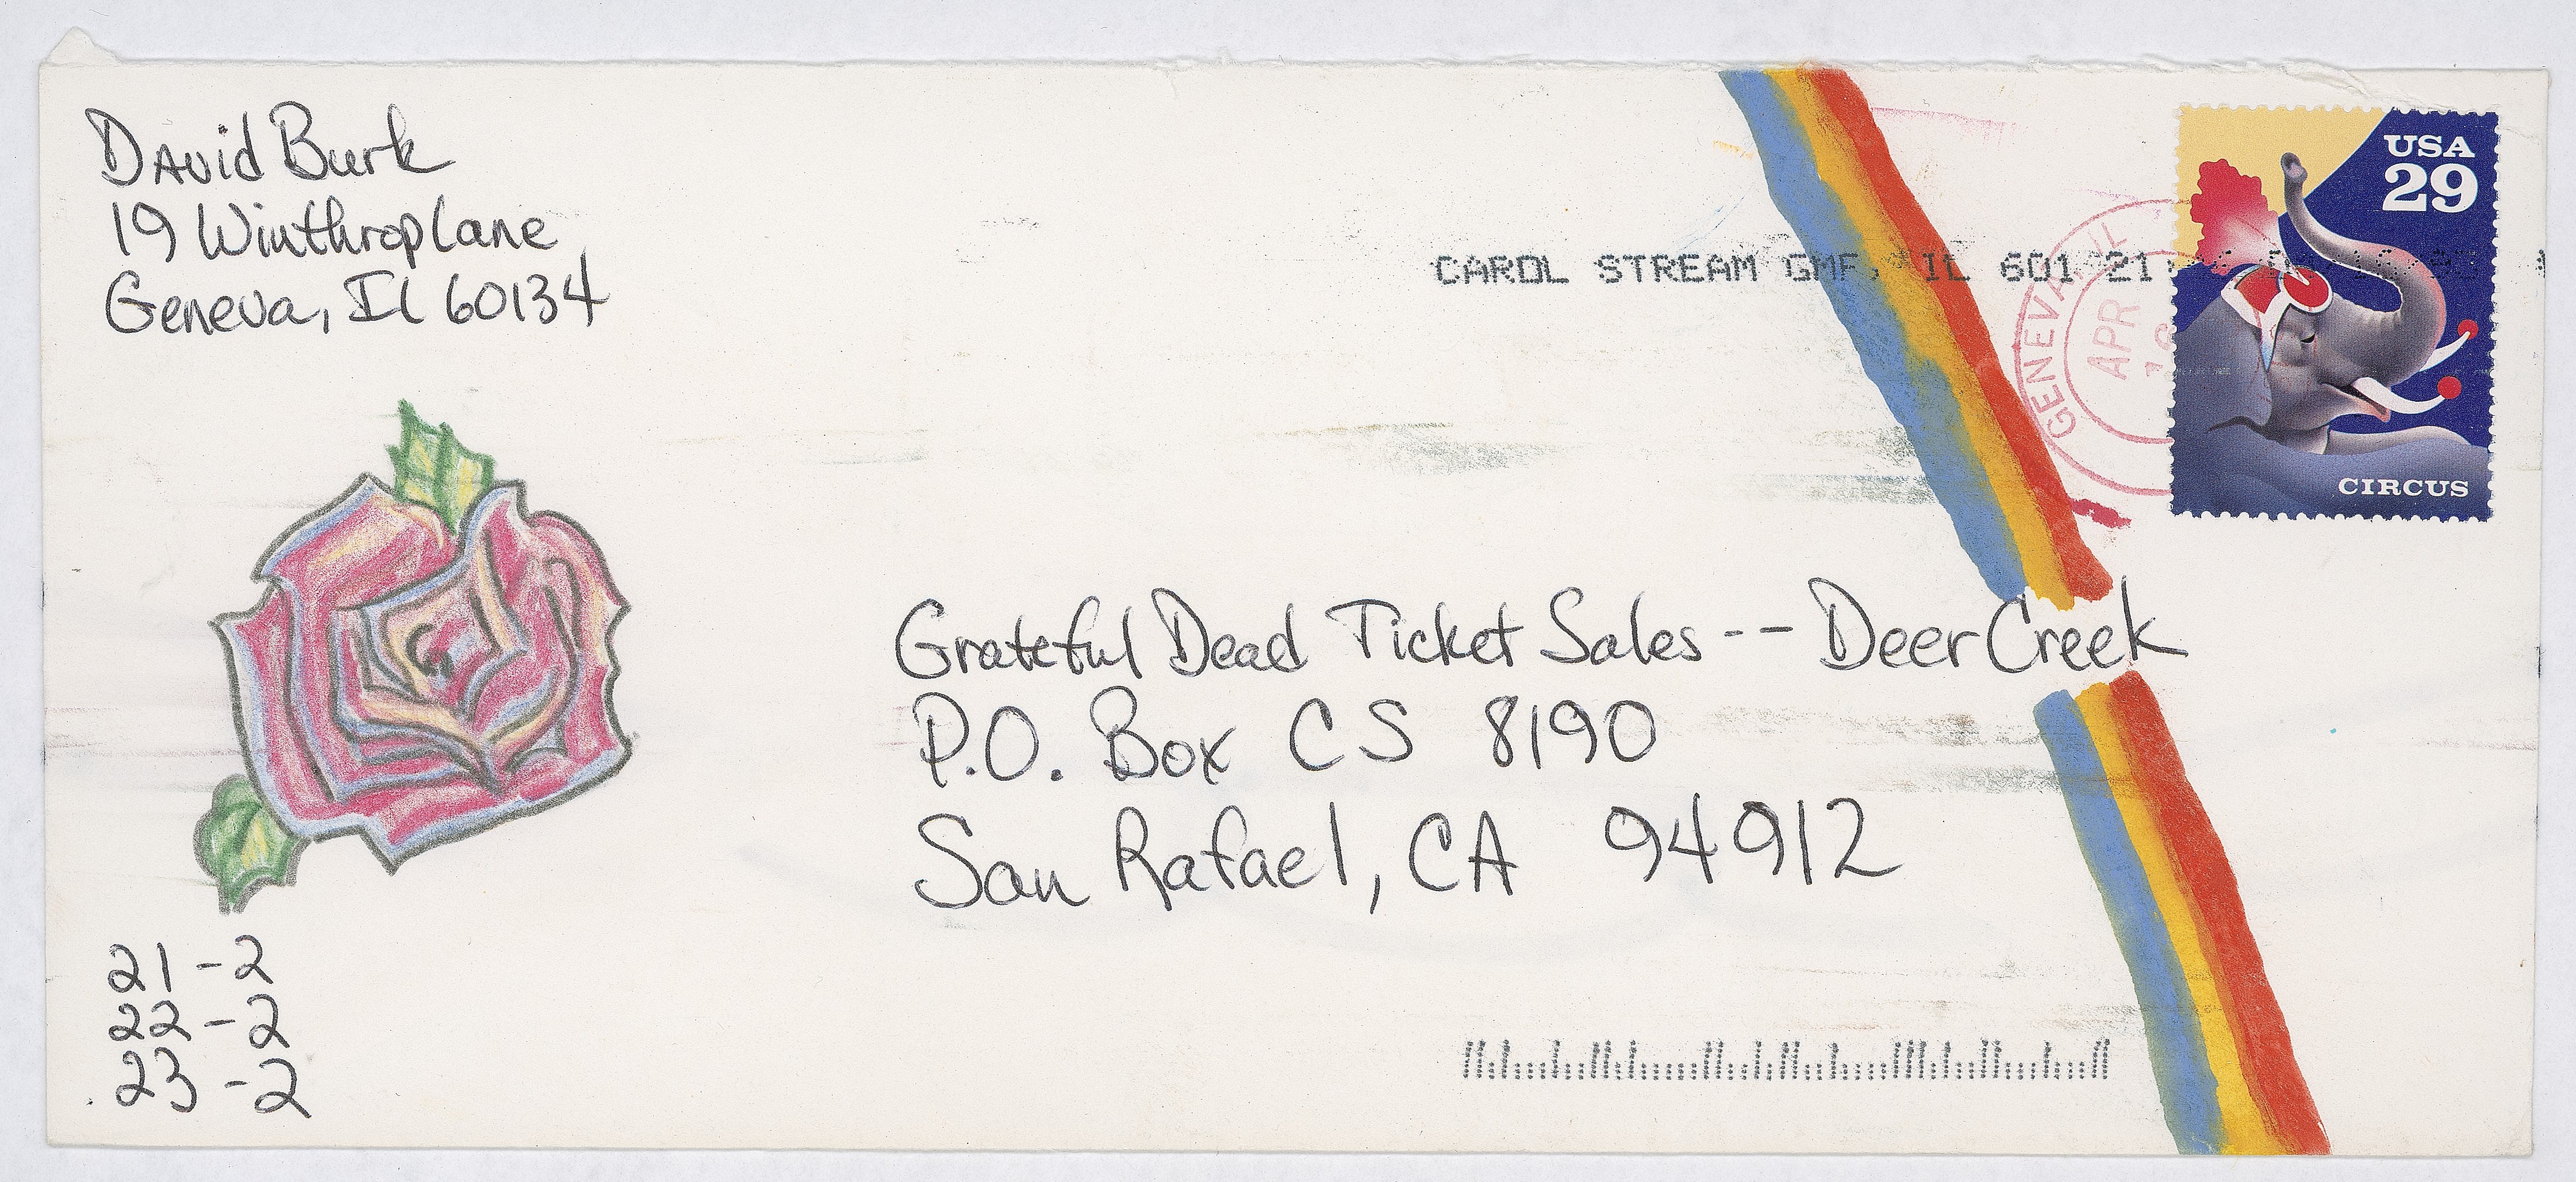 David Burk
19 Winthrop Lane
Geneva, Il 60134
USA
29
CIRCUS
CAROL STREAM GMF, IL 601 21
GENEVA, IL
APR
16
Grateful Dead Ticket Sales -- Deer Creek
P.O. Box CS 8190
San Rafael, CA 94912
21 - 2
22 - 2
23 - 2